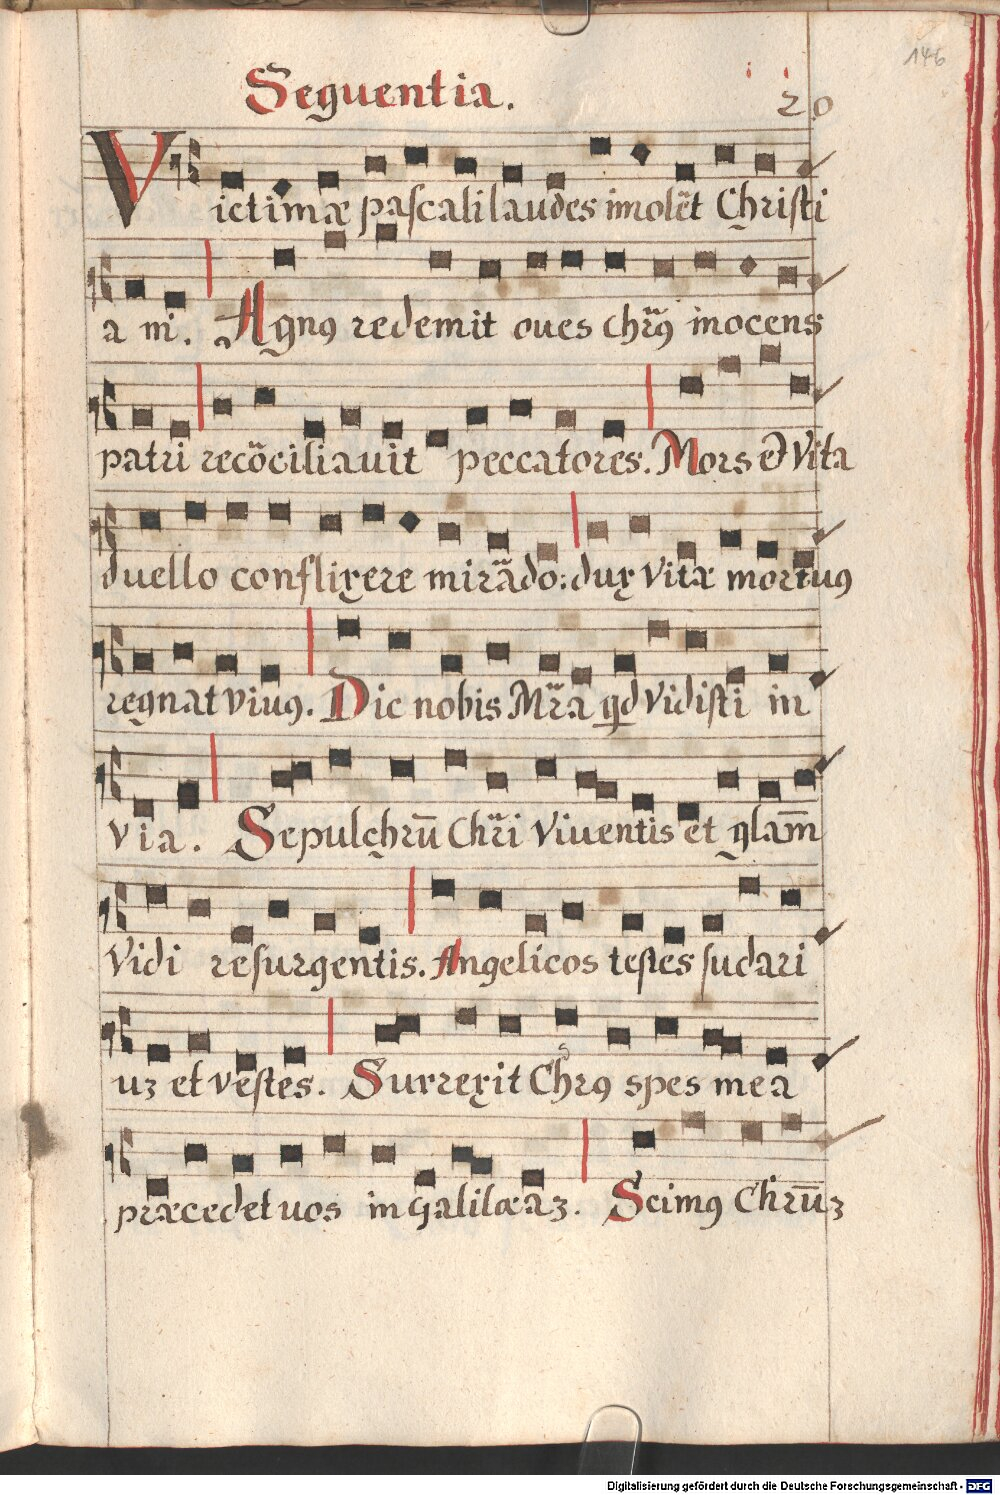 146
Sequentia.
20
Victimæ paſcali laudes imolēt Chriſti
a ni. Agnꝰ redemit oues chr̄ꝰ inocens
patri recōciliauit peccatores. Mors et Vita
duello conflixere mirādo: dux Vitæ mortuus
regnat viuꝰ. Dic nobis Mr̄a qd Vidiſti in
via. Sepulchrū Chr̄i Viuentis et glam̄
Vidi reſurgentis. Angelicos teſtes ſudari
uʒ et veſtes. Surrexit Chrꝰ spes mea
præcedet uos in galilæaʒ. Scimꝰ Chrūʒ
Digitalisierung gefördert durch die Deutsche Forschungsgemeinschaft - DFG